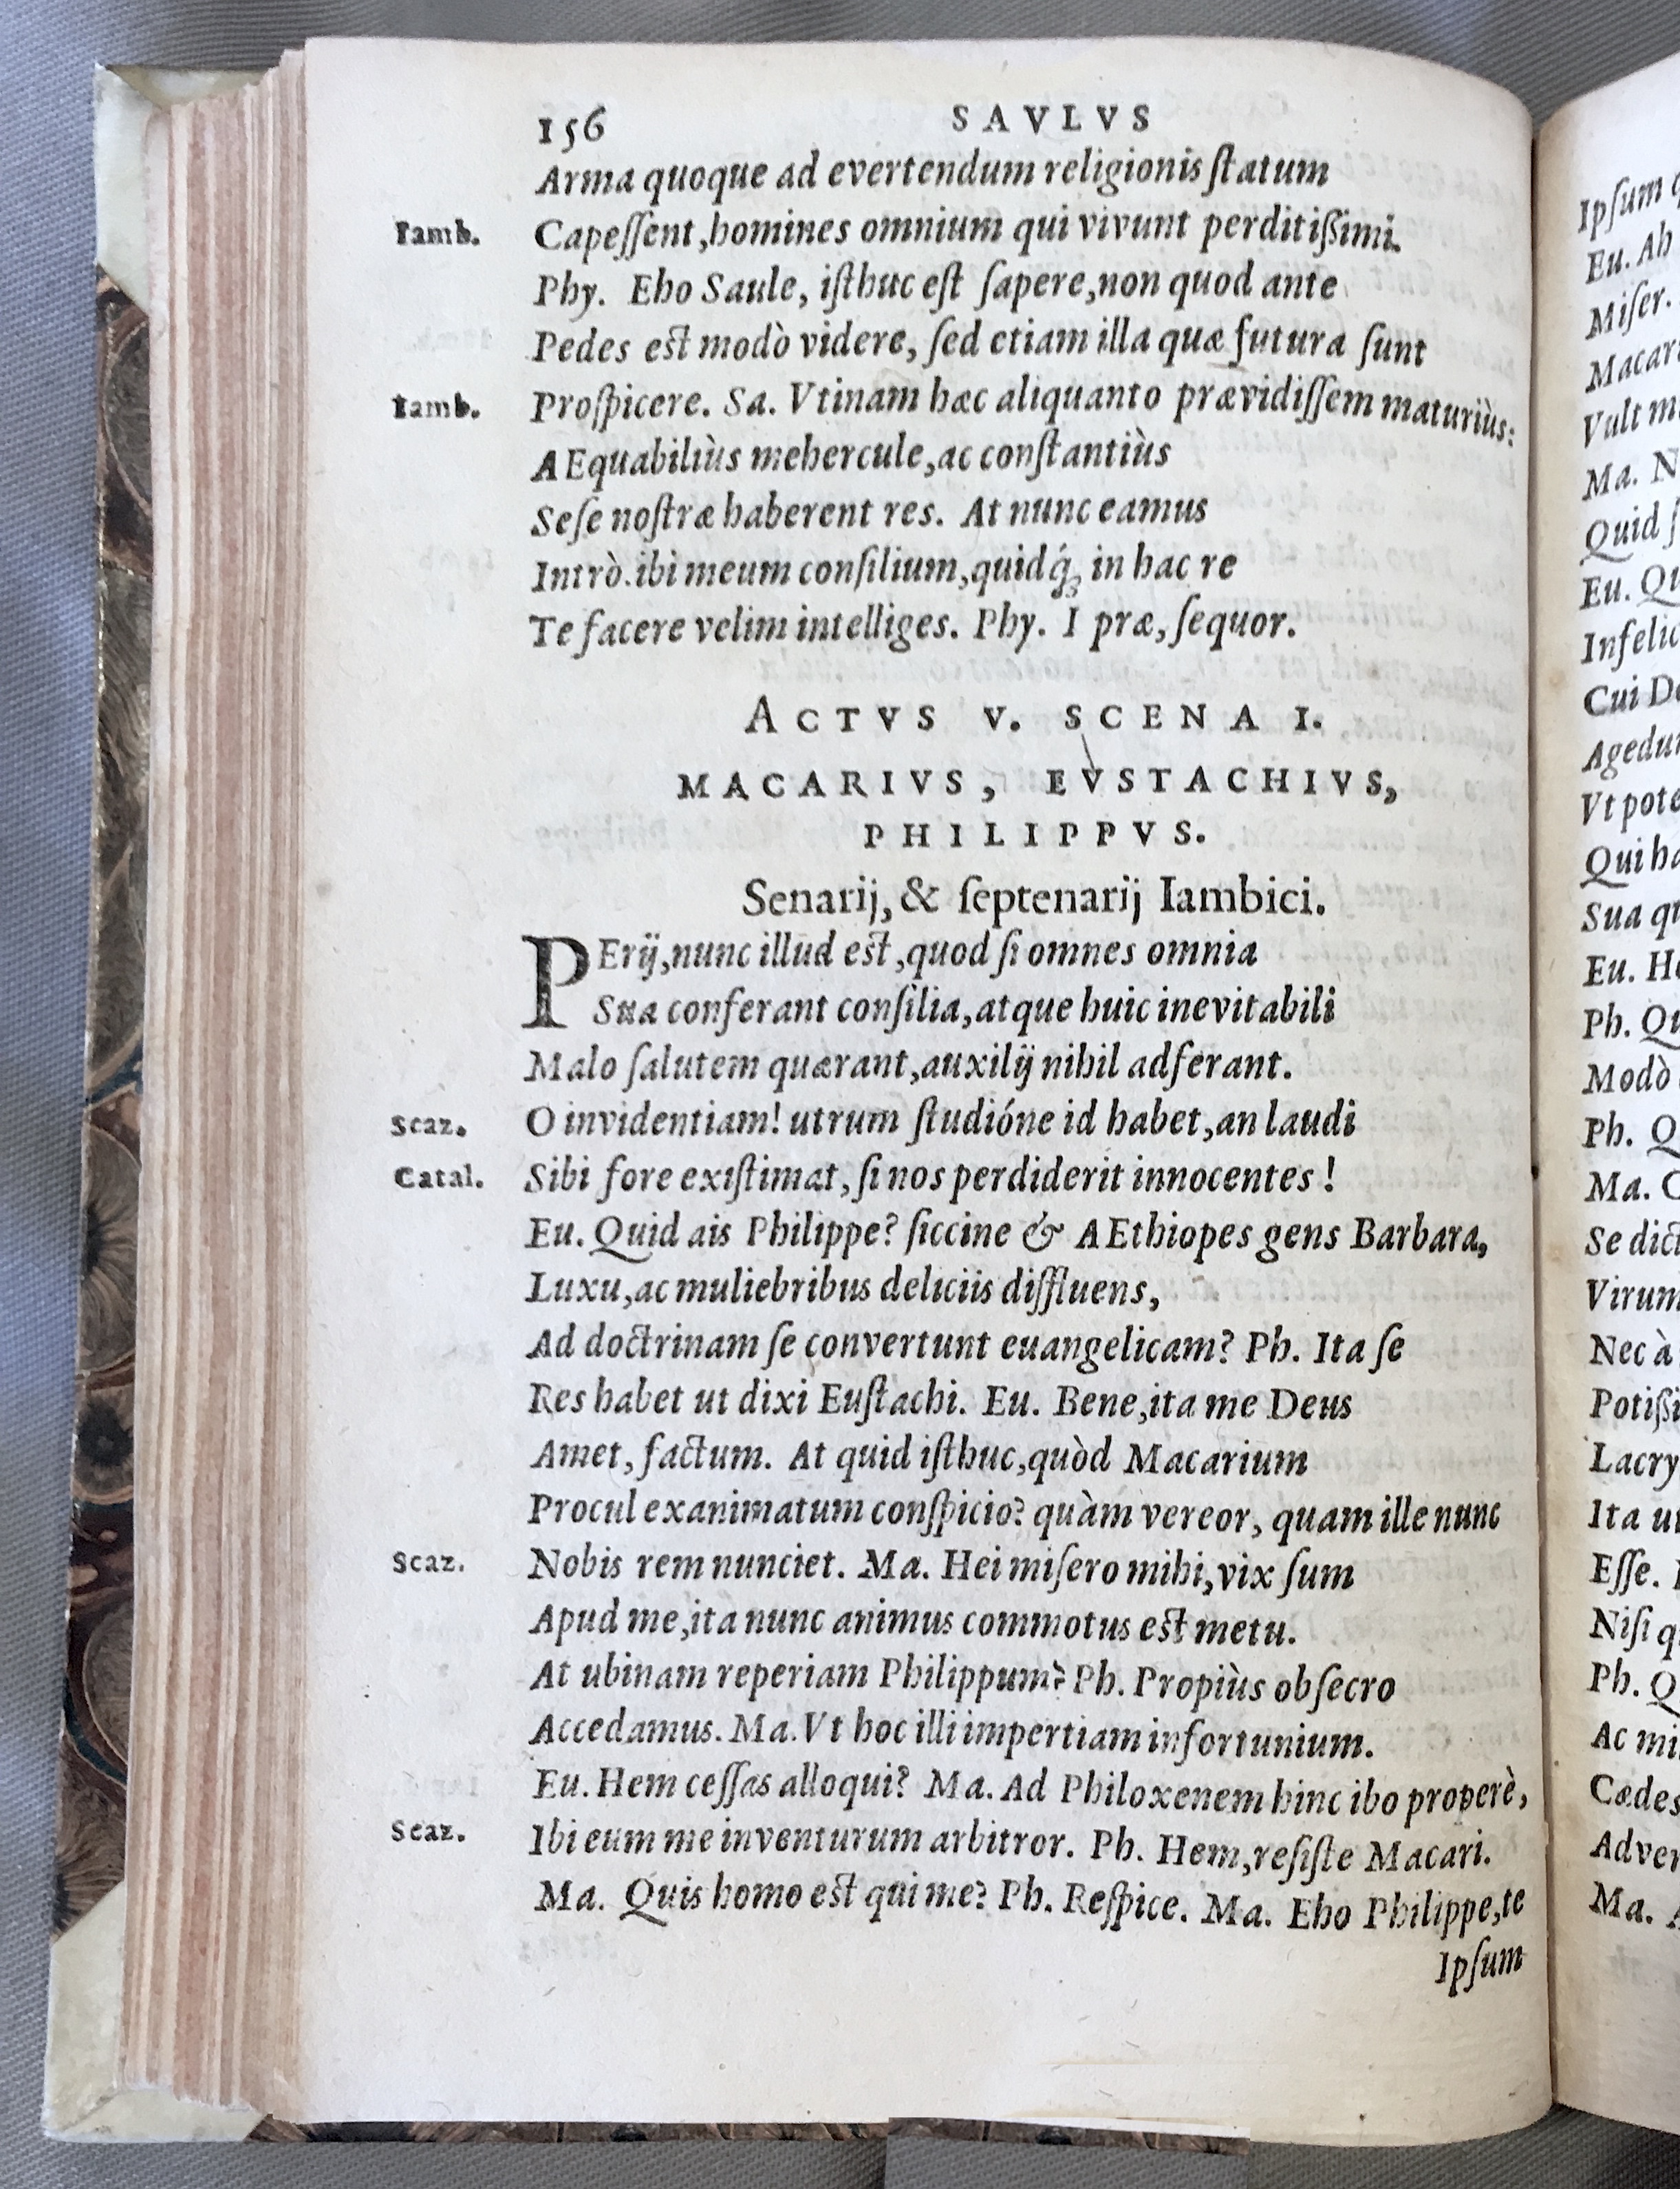 156 SAVLVS
Arma quoque ad evertendum religionis ſtatum
Iamb. Capeſſent, homines omnium qui vivunt perditißimi.
Phy. Eho Saule, iſthuc eſt ſapere, non quod ante
Pedes eſt modò videre, ſed etiam illa quæ futura ſunt
Iamb. Proſpicere. Sa. Vtinam hæc aliquanto prævidiſſem maturiùs:
AEquabiliùs mehercule, ac conſtantiùs
Seſe noſtræ haberent res. At nunc eamus
Intrò. ibi meum conſilium, quidq́; in hac re
Te facere velim intelliges. Phy. I præ, ſequor.
ACTVS V. SCENA I.
MACARIVS, EVSTACHIVS,
PHILIPPVS.
Senarij, & ſeptenarij Iambici.
PErij, nunc illud eſt, quod ſi omnes omnia
Sua conferant conſilia, atque huic inevitabili
Malo ſalutem quærant, auxilij nihil adferant.
Scaz. O invidentiam! utrum ſtudióne id habet, an laudi
Catal. Sibi fore exiſtimat, ſi nos perdiderit innocentes!
Eu. Quid ais Philippe? ſiccine & AEthiopes gens Barbara,
Luxu, ac muliebribus deliciis diffluens,
Ad doctrinam ſe convertunt euangelicam? Ph. Ita ſe
Res habet ut dixi Euſtachi. Eu. Bene, ita me Deus
Amet, factum. At quid iſthuc, quòd Macarium
Procul exanimatum conſpicio? quàm vereor, quam ille nunc
Scaz. Nobis rem nunciet. Ma. Hei miſero mihi, vix ſum
Apud me, ita nunc animus commotus eſt metu.
At ubinam reperiam Philippum? Ph. Propiùs obſecro
Accedamus. Ma. Vt hoc illi impertiam infortunium.
Eu. Hem ceſſas alloqui? Ma. Ad Philoxenem hinc ibo properè,
Scaz. Ibi eum me inventurum arbitror. Ph. Hem, reſiſte Macari.
Ma. Quis homo eſt qui me? Ph. Reſpice. Ma. Eho Philippe, te
Ipſum
Ipſum
Eu. Ah
Miſer.
Vult
Ma.
Quid
Eu.
Cui
Vt
Sua
Eu.
Ph.
Modò
Ph.
Ma.
Se
Nec à
Ita
Eſſe.
Niſi
Ph.
Ac
Ma.